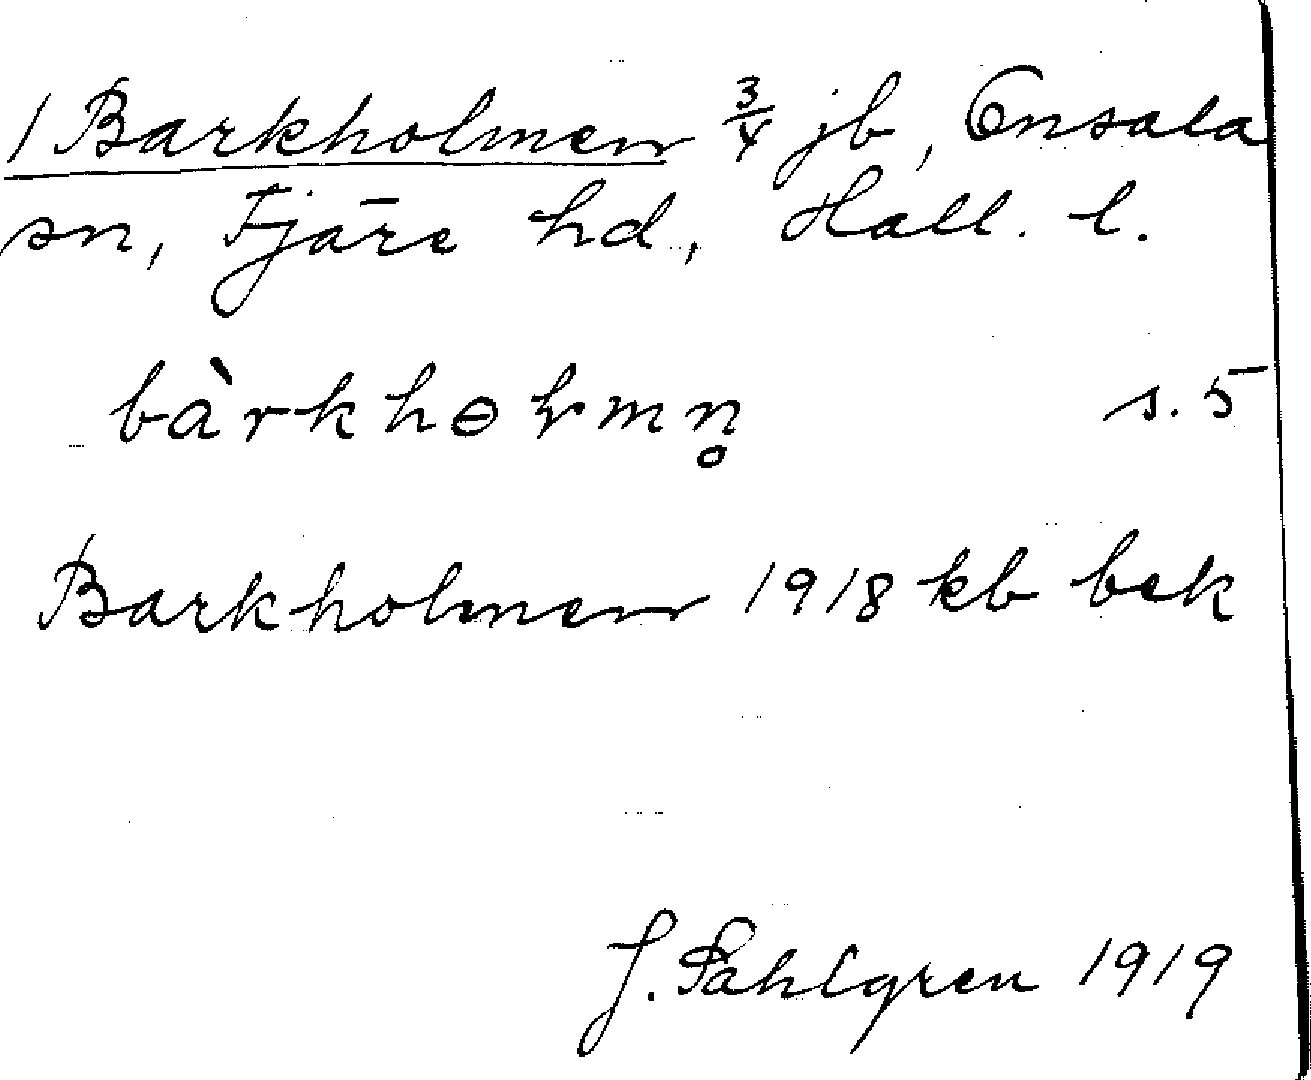 1 Barkholmen 3/4 jb, Onsala
sn, Fjäre hd, Hall. l.
bàrkhɵɫmn̥ s. 5
Barkholmen 1918 kb bek
J. Sahlgren 1919